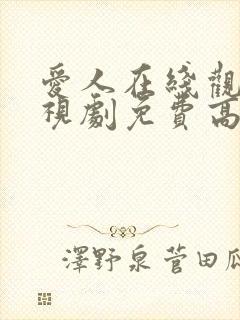 愛人在綫觀
視劇免費高
澤野泉菅田瓜